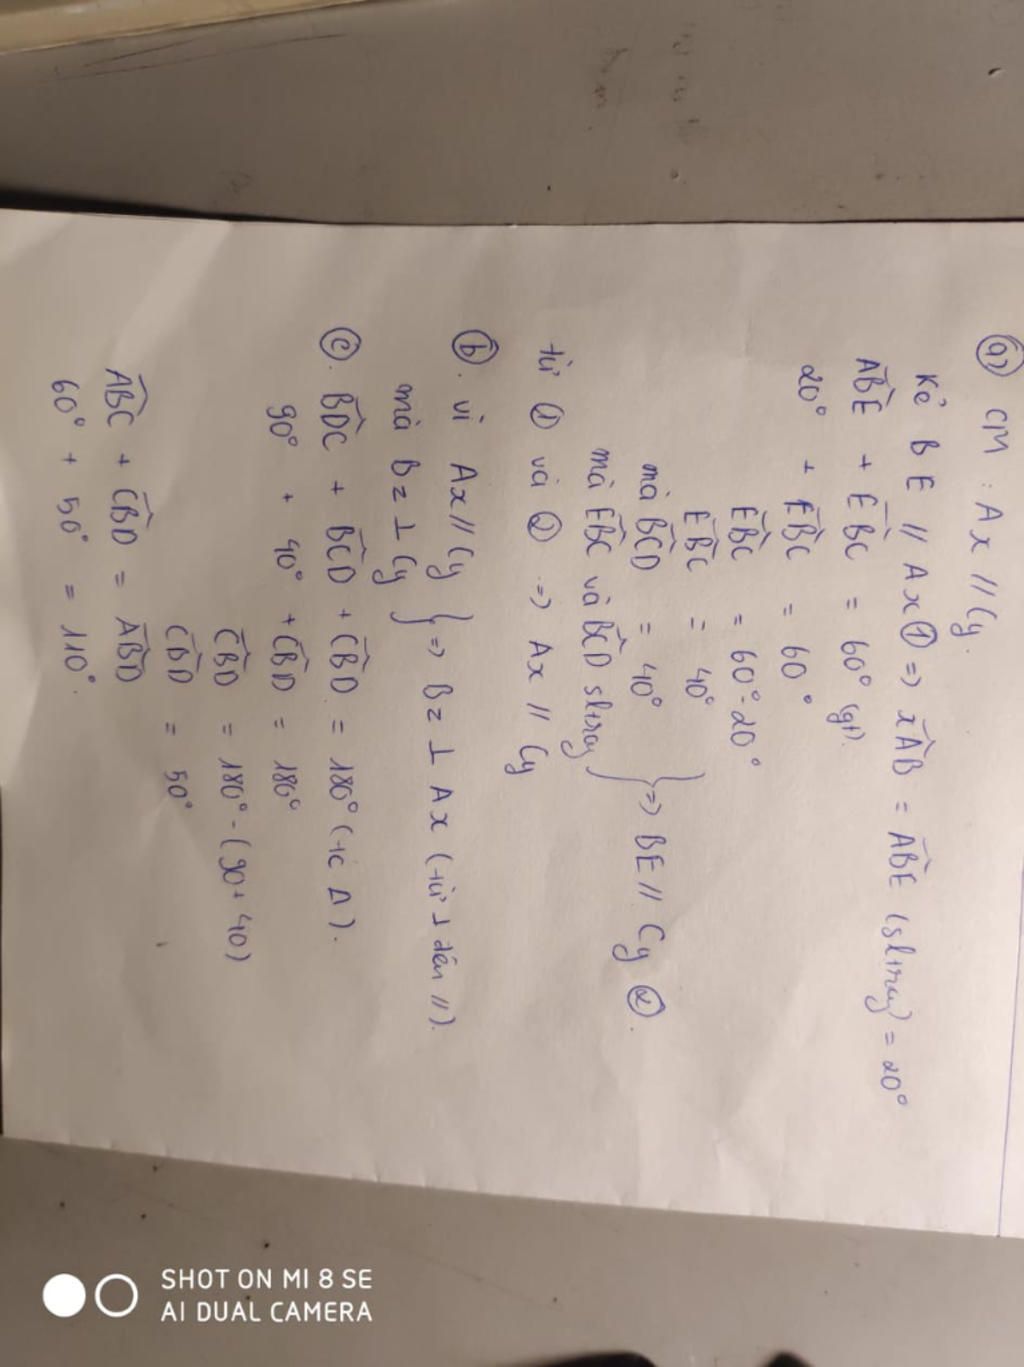 a) CM : Ax // Cy.
Kẻ BE // Ax ① => xAB = ABE (sltrog) = 20°
ABE + EBC = 60° (gt).
20° + EBC = 60°
EBC = 60° - 20°
EBC = 40°
mà BCD = 40°
mà EBC và BCD sltrog } => BE // Cy ②.
từ ① và ② => Ax // Cy
b. vì Ax // Cy
mà Bz ⊥ Cy } => Bz ⊥ Ax (từ ⊥ đến //).
c. BDC + BCD + CBD = 180° (tc Δ).
90° + 40° + CBD = 180°
CBD = 180° - (90 + 40)
CBD = 50°
ABC + CBD = ABD
60° + 50° = 110°.
SHOT ON MI 8 SE
AI DUAL CAMERA